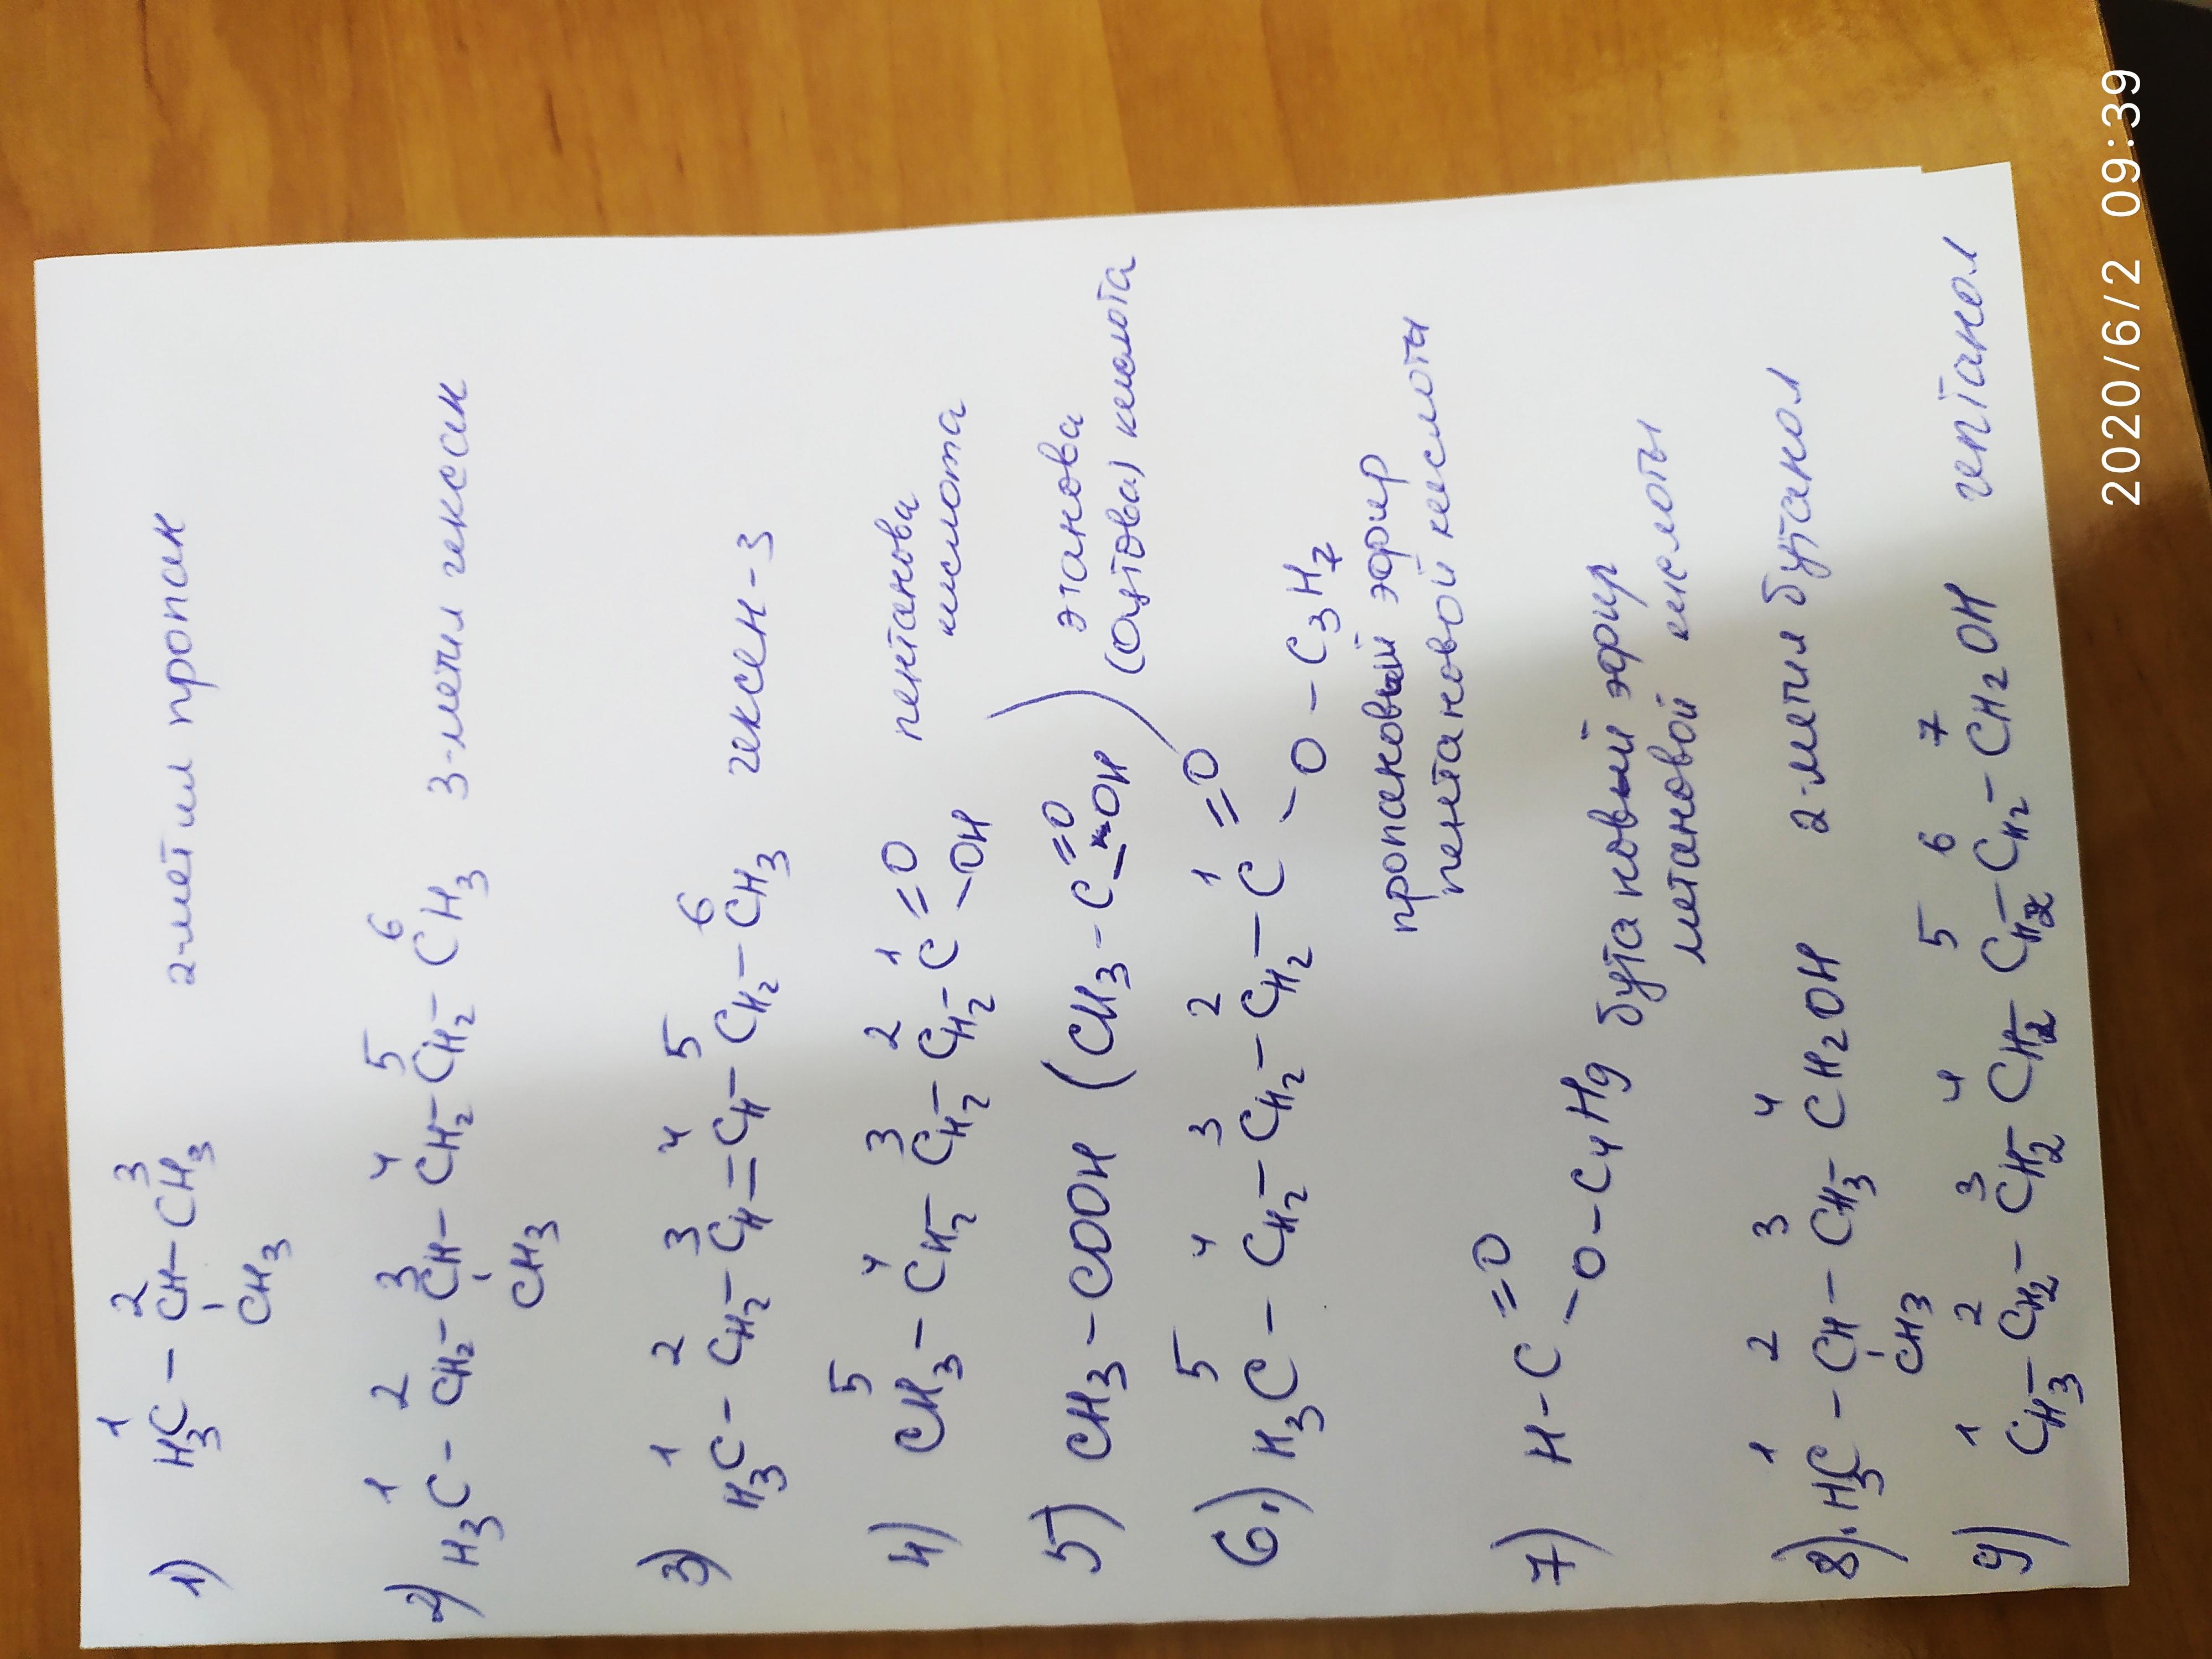 1) H₃C¹ – CH² – CH₃³ 2-метил пропан
CH₃
2) H₃C¹ – CH₂² – CH³ – CH₂⁴ – CH₂⁵ – CH₃⁶ 3-метил гексан
CH₃
3) H₃C¹ – CH₂² – CH³ = CH⁴ – CH₂⁵ – CH₃⁶ гексен-3
4) CH₃⁵ – CH₂⁴ – CH₂³ – CH₂² – C¹ =O пентанова
–OH кислота
5) CH₃ – COOH (CH₃ – C =O –OH) этанова
(оцтова) кислота
6.) H₃C⁵ – CH₂⁴ – CH₂³ – CH₂² – C¹ =O
–O – C₃H₇
пропановый эфир
пентановой кислоты
7) H – C =O
–O – C₄H₉ бутановый эфир
метановой кислоты
8). H₃C¹ – CH² – CH₃³ – CH₂OH⁴ 2-метил бутанол
CH₃
9) CH₃¹ – CH₂² – CH₂³ – CH₂⁴ – CH₂⁵ – CH₂⁶ – CH₂OH⁷ гептанол
2020/6/2 09:39